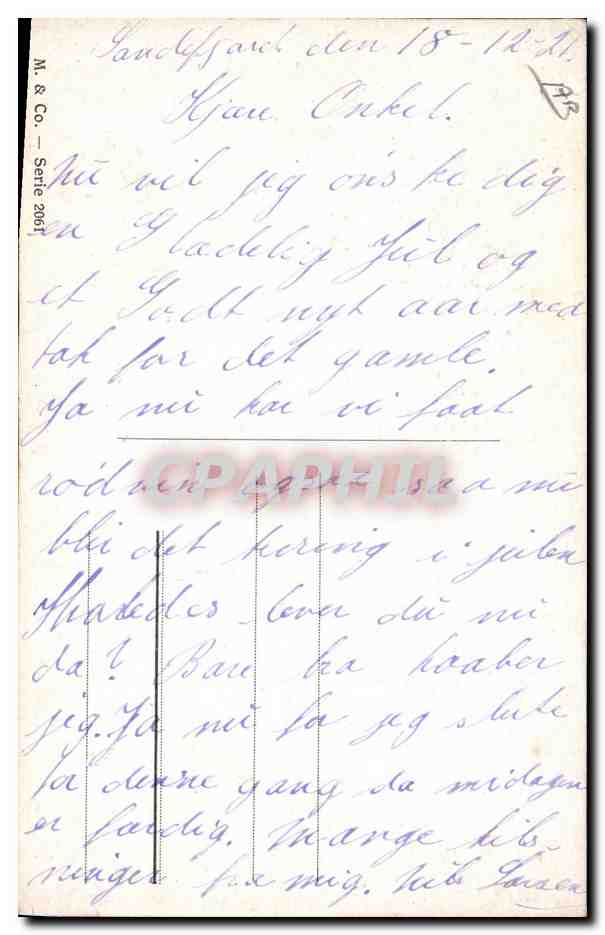 Sandefjord den 18-12-21.
AB
Kjære Onkel.
M. & Co. — Serie 2061
Nu vil jeg ønske dig
en Glædelig Jul og
et Godt nyt aar med
tak for det gamle.
Ja nu har vi faat
CPAPHIL
igjen saa nu
bli det køring i julen
Hvorledes lever du nu
da? Bare bra haaber
jeg. Ja nu får jeg slute
for denne gang da midagen
er færdig. Mange hils-
ninger fra mig. Nils